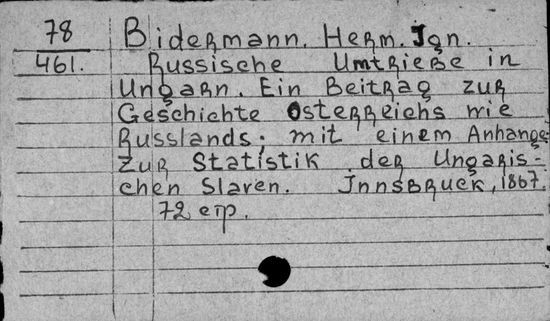 78 Bidermann. Herm. Ign.
461. Russische Umtriebe in
Ungarn. Ein Beitrag zur
Geschichte Österreichs wie
Russlands; mit einem Anhange
zur Statistik der Ungaris-
chen Slaven. Innsbruck, 1867.
72 стр.